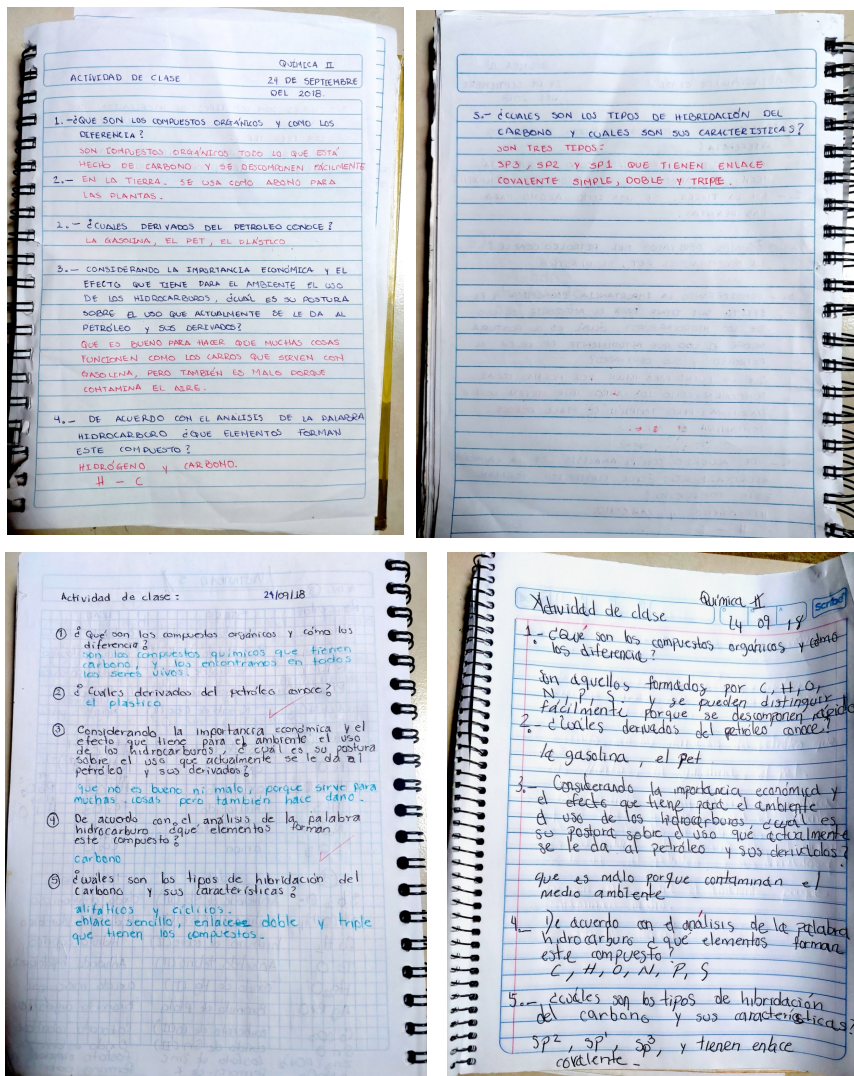 QUIMICA II
ACTIVIDAD DE CLASE
24 DE SEPTIEMBRE
DEL 2018.
1.-¿QUE SON LOS COMPUESTOS ORGÁNICOS Y COMO LOS
DIFERENCIA?
SON COMPUESTOS ORGÁNICOS TODO LO QUE ESTÁ
HECHO DE CARBONO Y SE DESCOMPONEN FÁCILMENTE
2.- EN LA TIERRA. SE USA COMO ABONO PARA
LAS PLANTAS.
2.- ¿CUALES DERIVADOS DEL PETROLEO CONOCE?
LA GASOLINA, EL PET, EL PLÁSTICO
3.- CONSIDERANDO LA IMPORTANCIA ECONÓMICA Y EL
EFECTO QUE TIENE PARA EL AMBIENTE EL USO
DE LOS HIDROCARBUROS, ¿CUÁL ES SU POSTURA
SOBRE EL USO QUE ACTUALMENTE SE LE DA AL
PETRÓLEO Y SUS DERIVADOS?
QUE ES BUENO PARA HACER QUE MUCHAS COSAS
FUNCIONEN COMO LOS CARROS QUE SIRVEN CON
GASOLINA, PERO TAMBIÉN ES MALO PORQUE
CONTAMINA EL AIRE.
4.- DE ACUERDO CON EL ANALISIS DE LA PALABRA
HIDROCARBURO ¿QUE ELEMENTOS FORMAN
ESTE COMPUESTO?
HIDRÓGENO Y CARBONO.
H - C
5.- ¿CUALES SON LOS TIPOS DE HIBRIDACIÓN DEL
CARBONO Y CUALES SON SUS CARACTERISTICAS?
SON TRES TIPOS:
SP3, SP2 Y SP1 QUE TIENEN ENLACE
COVALENTE SIMPLE, DOBLE Y TRIPLE.
Actividad de clase: 24/09/18
① ¿Qué son los compuestos orgánicos y cómo los
diferencia?
son los compuestos químicos que tienen
carbono, y los encontramos en todos
los seres vivos.
② ¿Cuáles derivados del petróleo conoce?
el plastico
③ Considerando la importancia económica y el
efecto que tiene para el ambiente el uso
de los hidrocarburos, ¿cuál es su postura
sobre el uso que actualmente se le da al
petróleo y sus derivados?
que no es bueno ni malo, porque sirve para
muchas cosas pero también hace daño.
④ De acuerdo con el análisis de la palabra
hidrocarburo ¿qué elementos forman
este compuesto?
carbono
⑤ ¿Cuáles son los tipos de hibridación del
carbono y sus características?
alifaticos y cíclicos.
enlace sencillo, enlace doble y triple
que tienen los compuestos.
Química II
Actividad de clase
24 09 18
scribe
1.- ¿Qué son los compuestos orgánicos y cómo
los diferencia?
Son aquellos formados por C, H, O,
N, P, S. y se pueden distinguir
fácilmente porque se descomponen rápido
2.- ¿Cuales derivados del petróleo conoce?
la gasolina, el pet
3.- Considerando la importancia económica y
el efecto que tiene para el ambiente
el uso de los hidrocarburos, ¿cual es
su postura sobre el uso que actualmente
se le da al petróleo y sus derivados?
que es malo porque contaminan el
medio ambiente
4.- De acuerdo con el análisis de la palabra
hidrocarburo ¿qué elementos forman
este compuesto?
C, H, O, N, P, S
5.- ¿cuáles son los tipos de hibridación
del carbono y sus características?
Sp2, Sp1, Sp3, y tienen enlace
covalente.